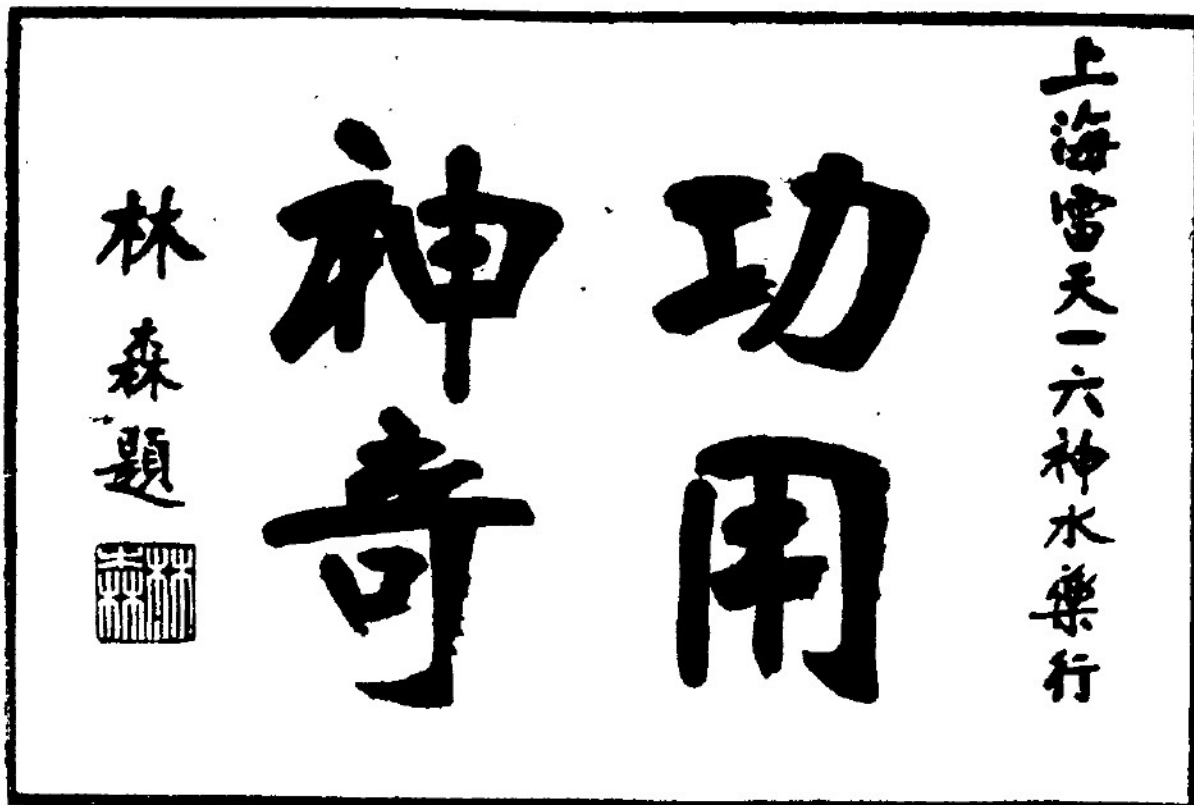 上海雷天一六神水藥行
功用
神奇
林森題
林森